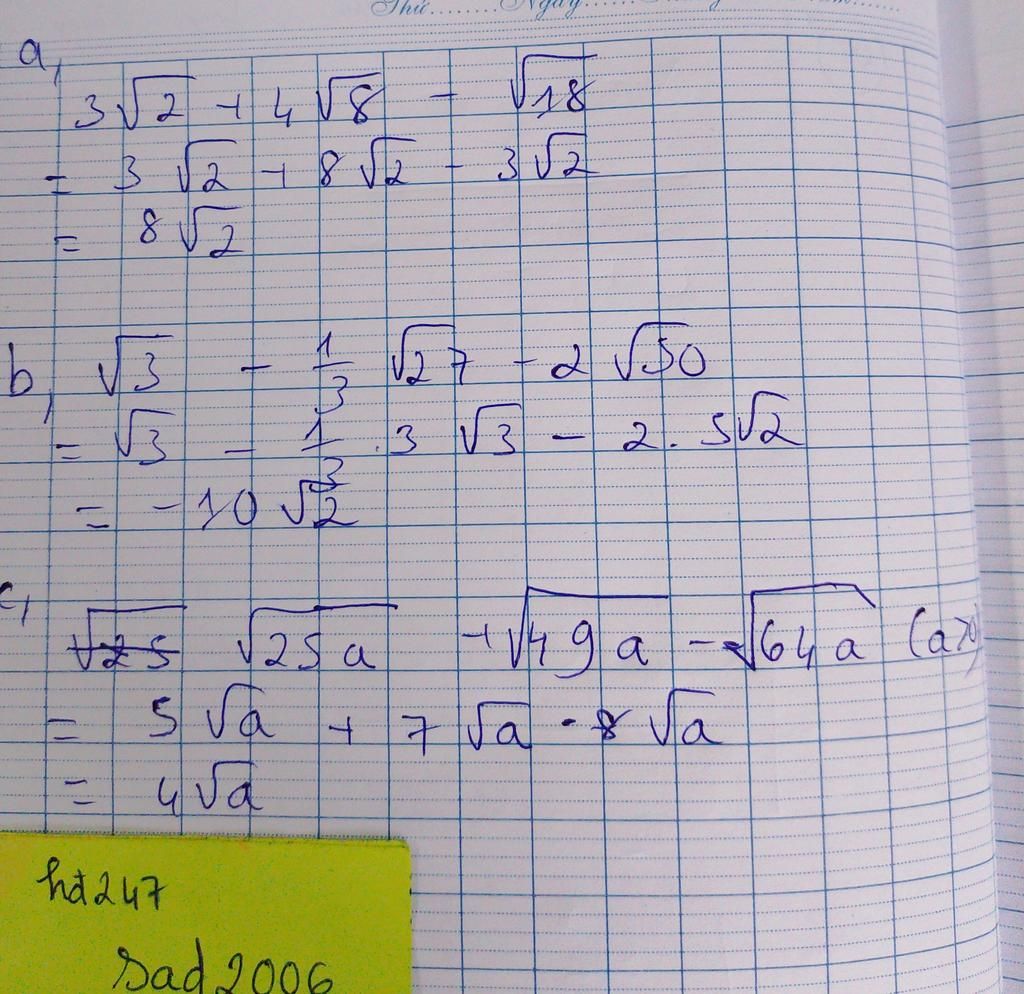 Thứ........Ngày
a,
3√2 + 4√8 - √18
= 3√2 + 8√2 - 3√2
= 8√2
b, √3 - 1/3 √27 - 2√50
= √3 - 1/3 . 3√3 - 2 . 5√2
= -10√2
c,
√25 √25a + √49a - √64a (a>0)
= 5√a + 7√a - 8√a
= 4√a
hd247
sad2006